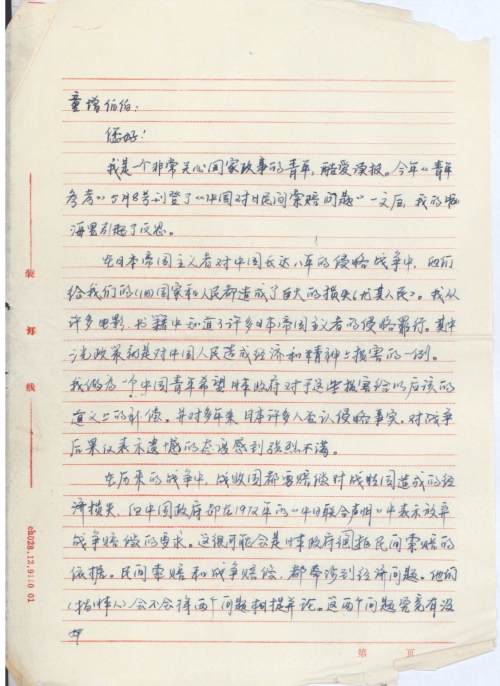 童增伯伯：
您好！
我是一个非常关心国家政事的青年，酷爱读报。今年《青年
参考》5月8号刊登了《中国对日民间索赔问题》一文后，我的脑
海里引起了反思。
在日本帝国主义者对中国长达八年的侵略战争中，他们
给我们的(旧)国家和人民都造成了巨大的损失(尤其人民)。我从
许多电影、书籍中知道了许多日本帝国主义者的侵略罪行。其中
三光政策就是对中国人民造成经济和精神上损害的一例。
我做为一个中国青年希望日本政府对于这些损害给以应该的
道义上的补偿。并对多年来日本许多人否认侵略事实，对战争
后果仅表示遗憾的态度感到强烈不满。
在历来的战争中，战败国都要赔偿对战胜国造成的经
济损失，但中国政府却在1972年的《中日联合声明》中表示放弃
战争赔偿的要求。这很可能会是日本政府拒民间索赔的
依据。民间索赔和战争赔偿，都牵涉到经济问题。他们
(指日本人)会不会将两个问题相提并论。这两个问题究竟有没
装
订
线
ch028.12.91:0 01
第 页